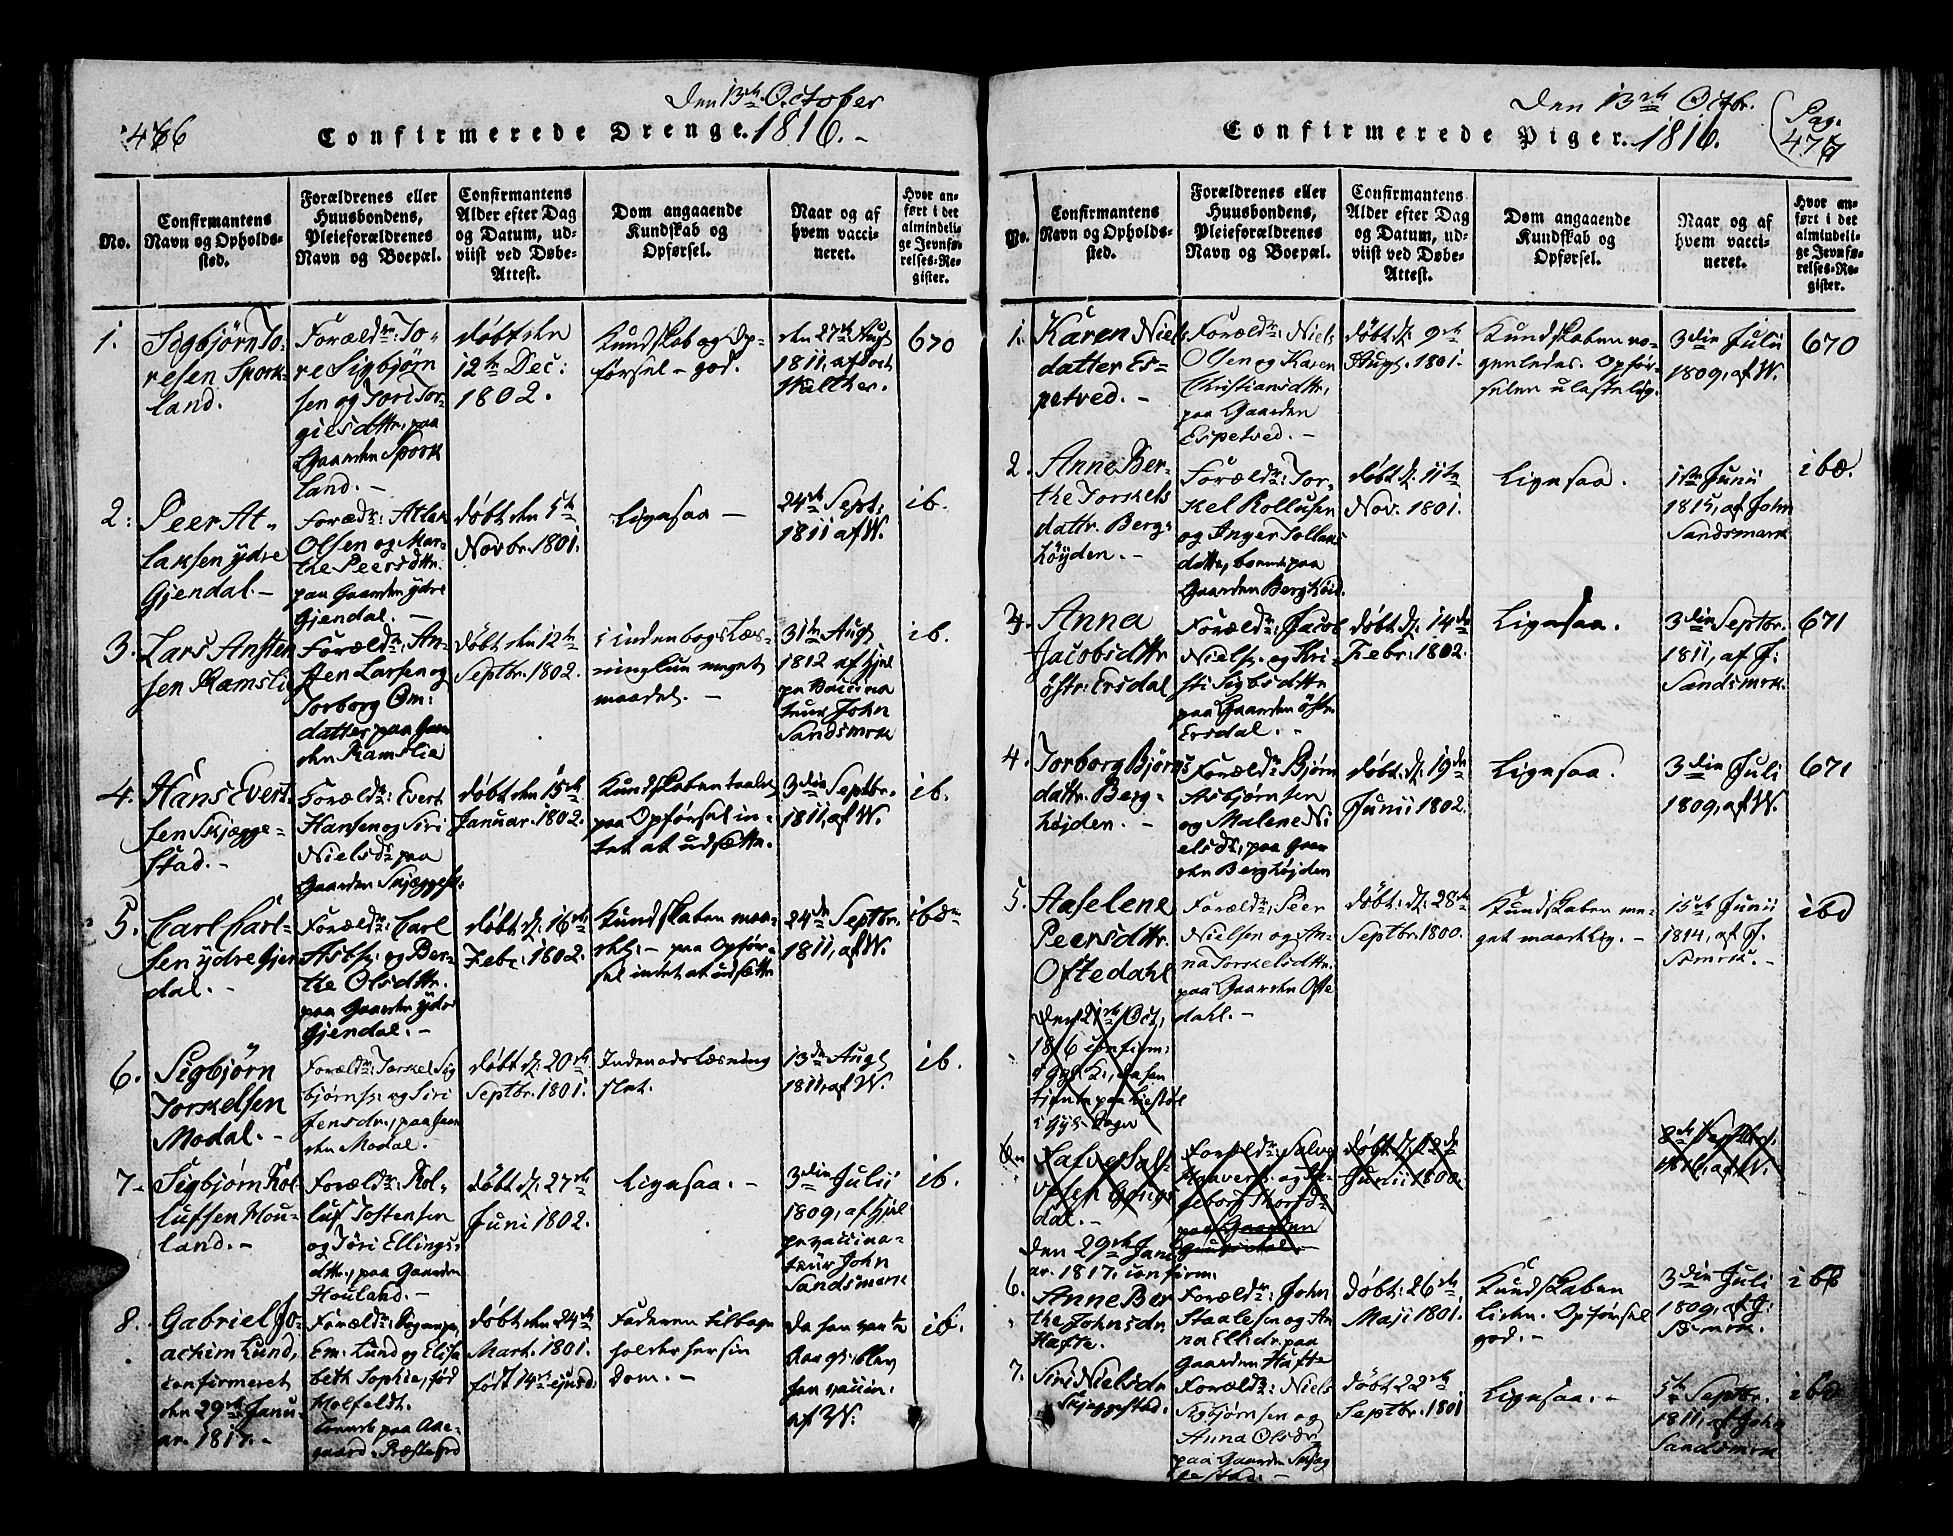 Den 13de October
466
Confirmerede Drenge. 1816. -
No.
Confirmantens
Navn og Opholds-
sted.
Forældrenes eller
Huusbondens,
Pleieforældrenes
Navn og Boepæl.
Confirmantens
Alder efter Dag
og Datum, ud-
viist ved Døbe-
Attest.
Dom angaaende
Kundskab og
Opførsel.
Naar og af
hvem vacci-
neret.
Hvor an-
ført i det
almindeli-
ge Jevnfø-
relses-Re-
gister.
1.
Sigbjørn To-
resen Spork-
land.
Forældr: To-
re Sigbjørn
sen og Tori Tor-
giesdttr, paa
Gaarden Spork
land. -
døbt den
12te Dec:
1802.
Kundskab og Op-
førsel - god.
den 27de Augt
1811, af
Walther.
670
2:
Peer At-
laksen ydre
Gjendal. -
Foræd: Atlak
Olsen og Mar-
the Peersdttr.
paa Gaarden ydre
Gjendal. -
døbt den 5te
Novbr. 1801.
Ligesaa -
24de Sept:
1811 af W.
ib.
3.
Lars Ansten
sen Ramslie
Forældr: An-
sten Larsen og
Torborg Om:
datter paa Gaar
den Ramslie
døbt den 12te
Septbr. 1802.
i indenbogs Læs-
ning kun meget
maadel. -
31te Augt
1812 af Hjel
pe Vaccina
teur John
Sandsmrk
ib.
4.
Hans Evert-
sen Skjægge-
stad. -
Forældr: Evert
Hansen og Siri
Nielsdr paa
Gaarden Skjæggest:
døbt den 15de
Januar. 1802.
Kundskaben taalel
paa Opførsel in-
tet at udsætte.
3die Septbr.
1811, af W.
ib.
5.
Carl Carl-
sen ydre Gjen
dal. -
Forældr: Carl
Asbs: og Ber-
the Olsdttr.
paa Gaarden ydre
Gjendal. -
døbt d: 16de
Febr: 1802.
Kundskaben maa-
- paa Opfør-
sel intet at udsætte
24de Septbr.
1811, af W.
6.
Sigbjørn
Torkelsen
Modal. -
Forældr: Torkel Sig
bjørns: og Siri
Jensdr., paa Gaar
den Modal.
døbt d: 20de
Septbr. 1801.
Indenadslæsning
slet.
13de Augt
1811, af W.
ib.
7-
Sigbjørn Rol
lufsen Hou-
land. -
Forældr: Rol-
luf Tostensen
og Tori Ellings:
dttr., paa Gaarden
Houland. -
døbt d: 27de
Juni 1802.
Ligesaa. -
3die Julii
1809, af Hjel
pevaccina-
teur John
Sandsmrk
ib.
8.
Gabriel Jo-
achim Lund,
confirmeret
den 29de Janu-
ar. 1817. -
Forældr:
Em: Lund og Elisa
beth Sophie, fød
Holfeldt.
paa Aae-
gaard. Præstegrd
døbt den 24de
Mart. 1801.
født 14de ejusd.
Faderen tilbage
holder her sin
Dom. -
Da han var ½
Aar gl: blev
han vaccin:
af W:
ib.
Den 13de Octbr.
Confirmerede Piger. 1816.
Pag.
476
No.
Confirmantens
Navn og Opholds-
sted.
Forældrenes eller
Huusbondens,
Pleieforældrenes
Navn og Boepæl.
Confirmantens
Alder efter Dag
og Datum, ud-
viist ved Døbe-
Attest.
Dom angaaende
Kundskab og
Opførsel.
Naar og af
hvem vacci-
neret.
Hvor an-
ført i det
almindeli-
ge Jevnfø-
relses-Re-
gister.
1.
Karen Niels
datter Es-
petved. -
Forældr: Niels
Olsen og Karen
Christiansdttr,
paa Gaarden
Espetved. -
døbt d: 9de
Augt. 1801.
Kundskaben no-
genledes. Opfør-
selen ulastelig.
3die Julii
1809, af W.
670
2.
Anne Ber-
the Torkels
dattr. Berg-
höyden. -
Forældr: Tor-
kel Rollufsen
og Inger Tollaus
datter, paa
Gaarden Berghöid.
døbt d: 11te
Nov. 1801.
Ligesaa.
Junii
1815, af John
Sandsmark
3.
Anna
Jacobsdttr
östr: Ersdal
Forældr: Jacob
Niels: og Kri-
sti Sigbsdttr
paa Gaarden östr
Ersdal. -
døbt d: 14de
Febr: 1802.
Ligesaa.
3die Septbr.
1811, af J:
Sandsmrk.
671
4.
Torborg Björns
dattr. Berg-
höjden. -
Forældr: Bjørn
Asbjørnsen
og Malene Ni
elsdr, paa Gaar
den Berghöjden
døbt. d: 19de
Junii 1802.
Ligesaa.
3die Juli
1809, af W.
671
5.
Aaselene
Peersdttr.
Oftedahl
Forældr: Peer
Nielsen og An-
na Torkelsdttr.
paa Gaarden Ofte
dahl. -
døbt: d: 28de
Septbr. 1800.
Kundskaben me-
get maadelig. -
15de Junii
1814, af J.
Smrk. -
ibd
Den 21de Oct,
1816 confirm:
i Gyl: K:,
tjente paa Liestøl
i Gyl:
6
Salve Sal-
vesen Gougs
dal. -
Forældr: Salve
Haavers: og In-
geborg Thorsdr
paa Gaarden
døbt d: 22de
Junii 1800.
8de Septbr.
1811, af W.
Den 29de Janu
ar. 1817. confirm.
6.
Anne Ber
the Johnsdr
Hafte.
Forældr: John
Staalesen og An
na Ellidr. paa
Gaarden Hafte
døbt: 26de
Maji 1801.
Kundskaben
Liden. Opførsel
god. -
3die Juli
1809, af J:
Smrk. -
7.
Siri Nielsdr
Skjeggestad.
Forældr: Niels
Sigbjørnsen og
Anna Olsdr
paa Gaarden Skjæg
gestad. -
døbt 22de
Septbr. 1801
Ligesaa. -
5te Septbr.
1811, af John
Sandsmrk
ibd